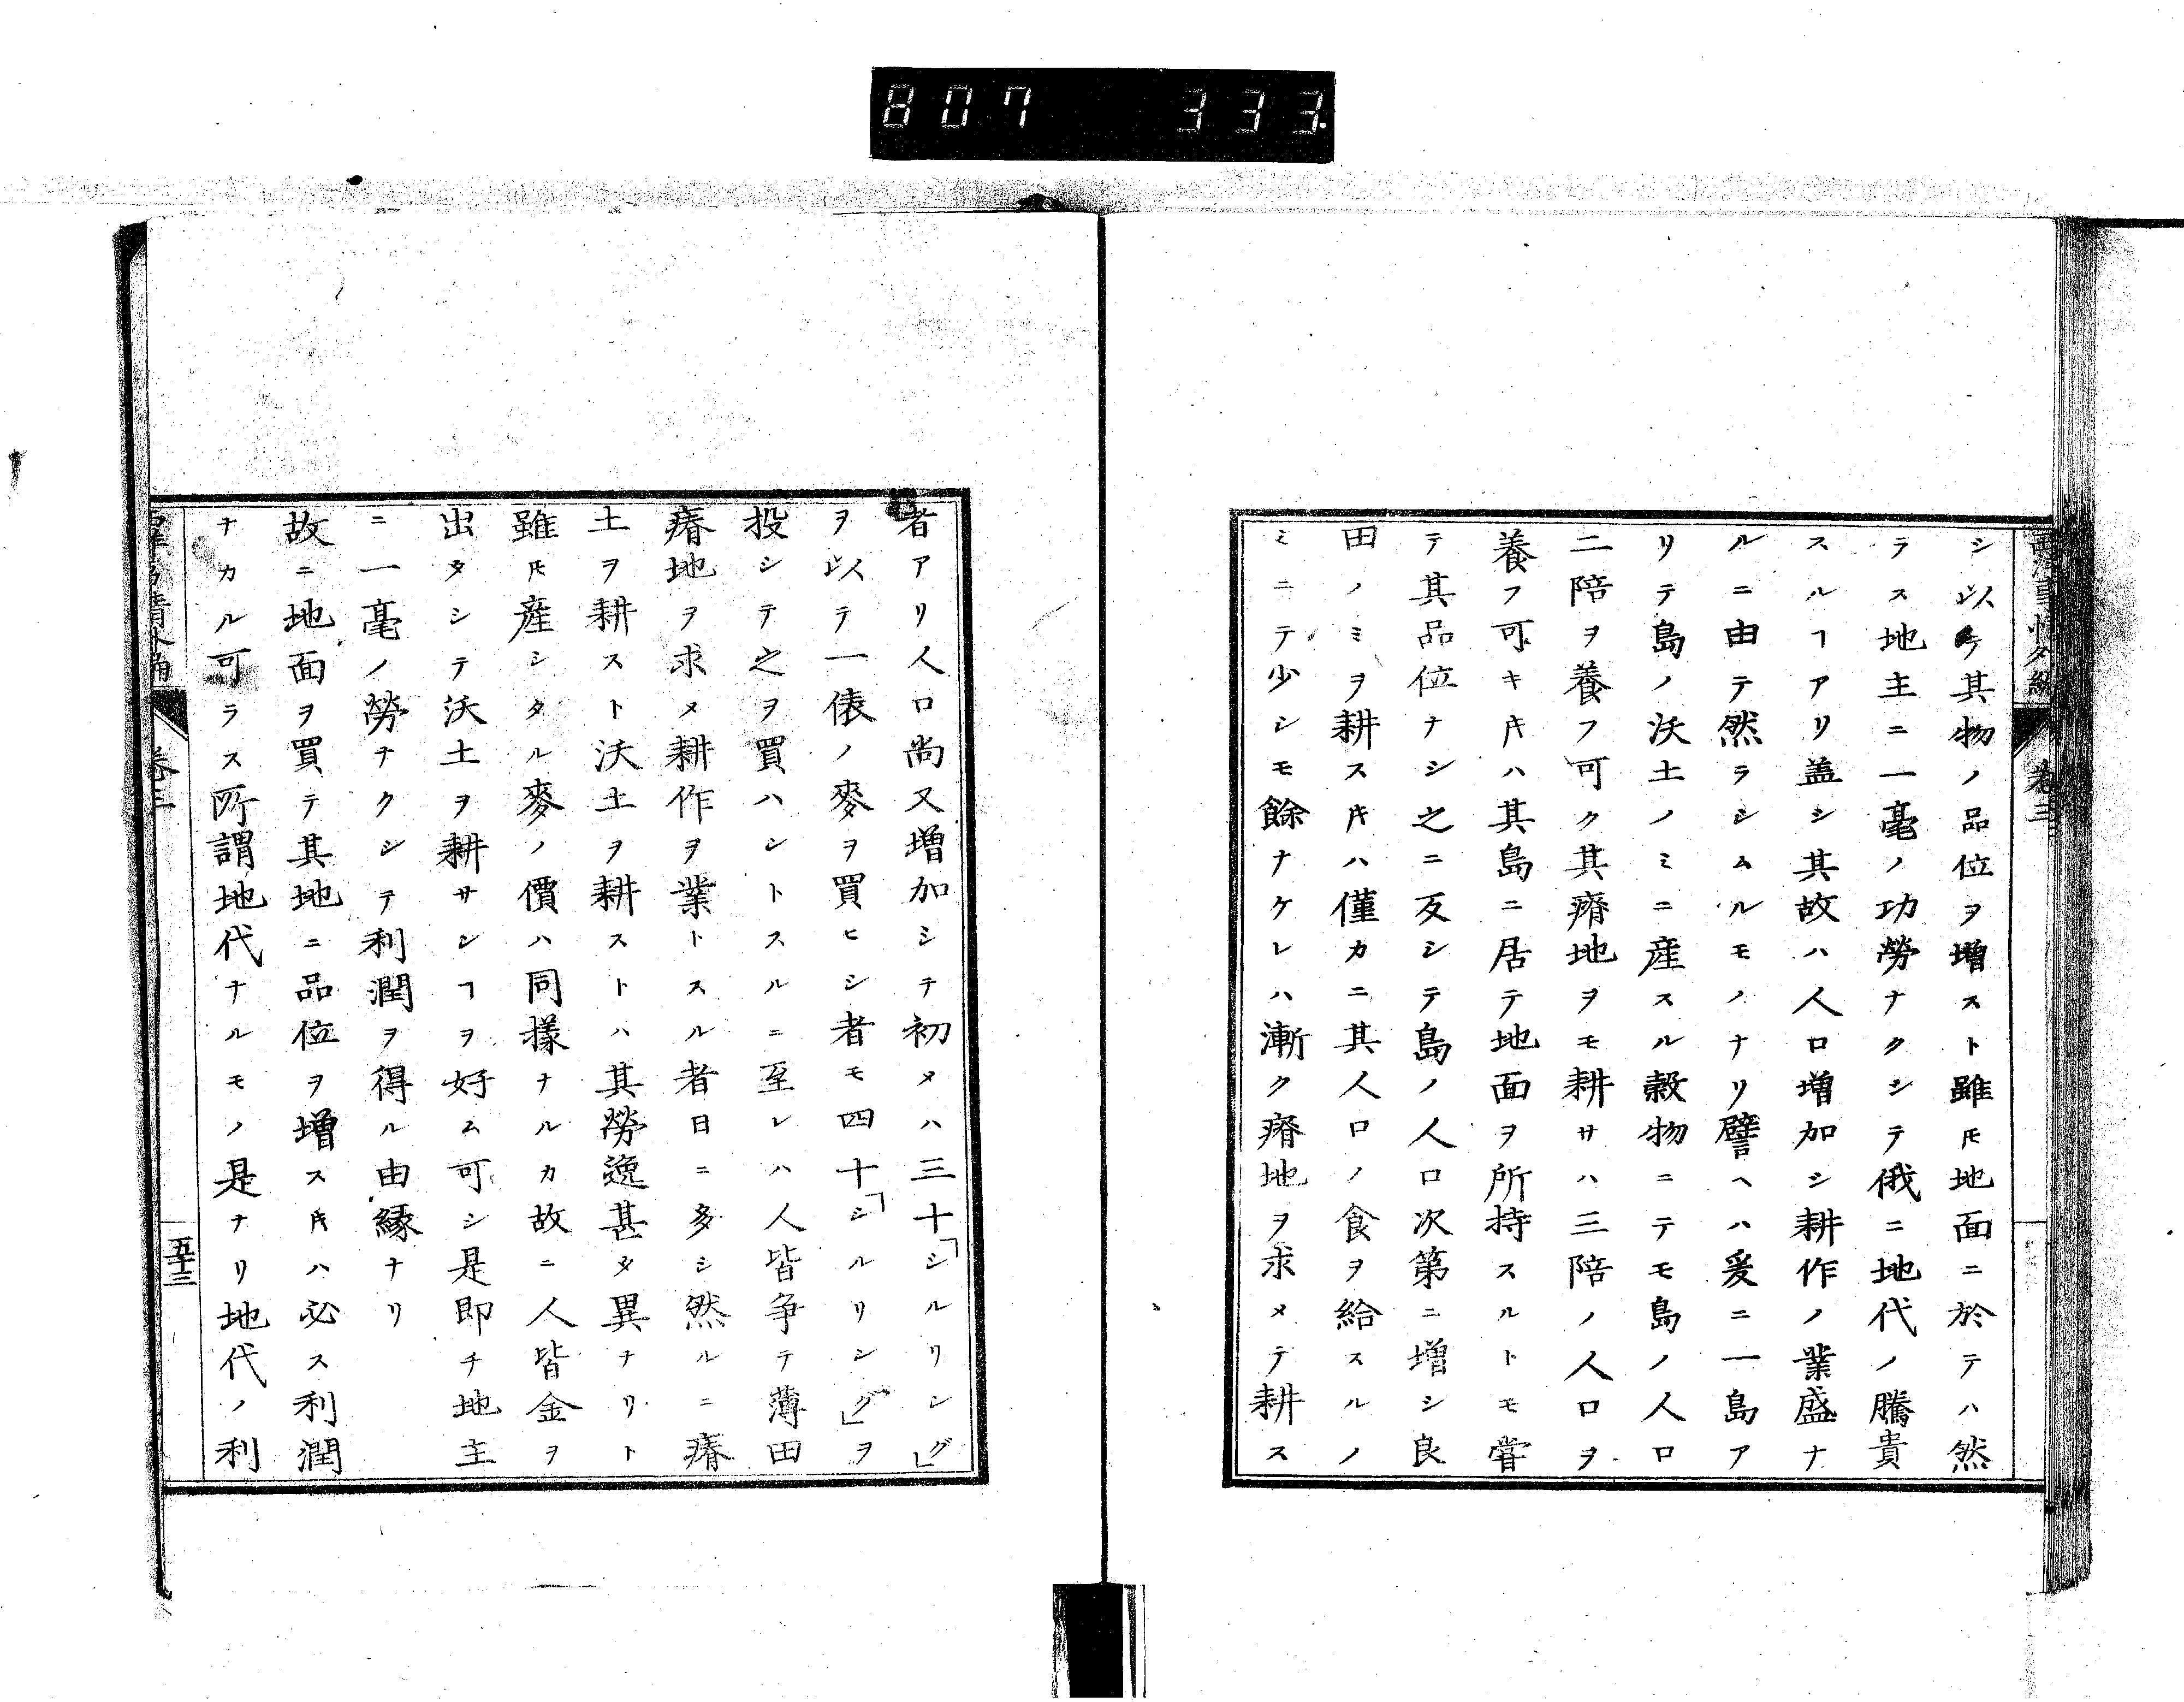 807 333.
西洋事情外編 卷三
シ以テ其物ノ品位ヲ増スト雖𪜈地面ニ於テハ然
ラス地主ニ一毫ノ功勞ナクシテ俄ニ地代ノ騰貴
スルヿアリ盖シ其故ハ人口増加シ耕作ノ業盛ナ
ルニ由テ然ラシムルモノナリ譬ヘハ爰ニ一島ア
リテ島ノ沃土ノミニ産スル穀物ニテモ島ノ人口
二陪ヲ養フ可ク其瘠地ヲモ耕サハ三陪ノ人口ヲ
養フ可キ𪜈ハ其島ニ居テ地面ヲ所持スルトモ甞
テ其品位ナシ之ニ反シテ島ノ人口次第ニ増シ良
田ノミヲ耕ス𪜈ハ僅カニ其人口ノ食ヲ給スルノ
ミニテ少シモ餘ナケレハ漸ク瘠地ヲ求メテ耕ス
者アリ人口尚又増加シテ初メハ三十「シルリング」
ヲ以テ一俵ノ麥ヲ買ヒシ者モ四十「シルリング」ヲ
投シテ之ヲ買ハントスルニ至レハ人皆争テ薄田
瘠地ヲ求メ耕作ヲ業トスル者日ニ多シ然ルニ瘠
土ヲ耕スト沃土ヲ耕ストハ其勞逸甚タ異ナリト
雖𪜈産シタル麥ノ價ハ同樣ナルカ故ニ人皆金ヲ
出タシテ沃土ヲ耕サンヿヲ好ム可シ是即チ地主
ニ一毫ノ勞ナクシテ利潤ヲ得ル由縁ナリ
故ニ地面ヲ買テ其地ニ品位ヲ增ス𪜈ハ必ス利潤
ナカル可ラス所謂地代ナルモノ是ナリ地代ノ利
西洋事情外編 卷三 五十三